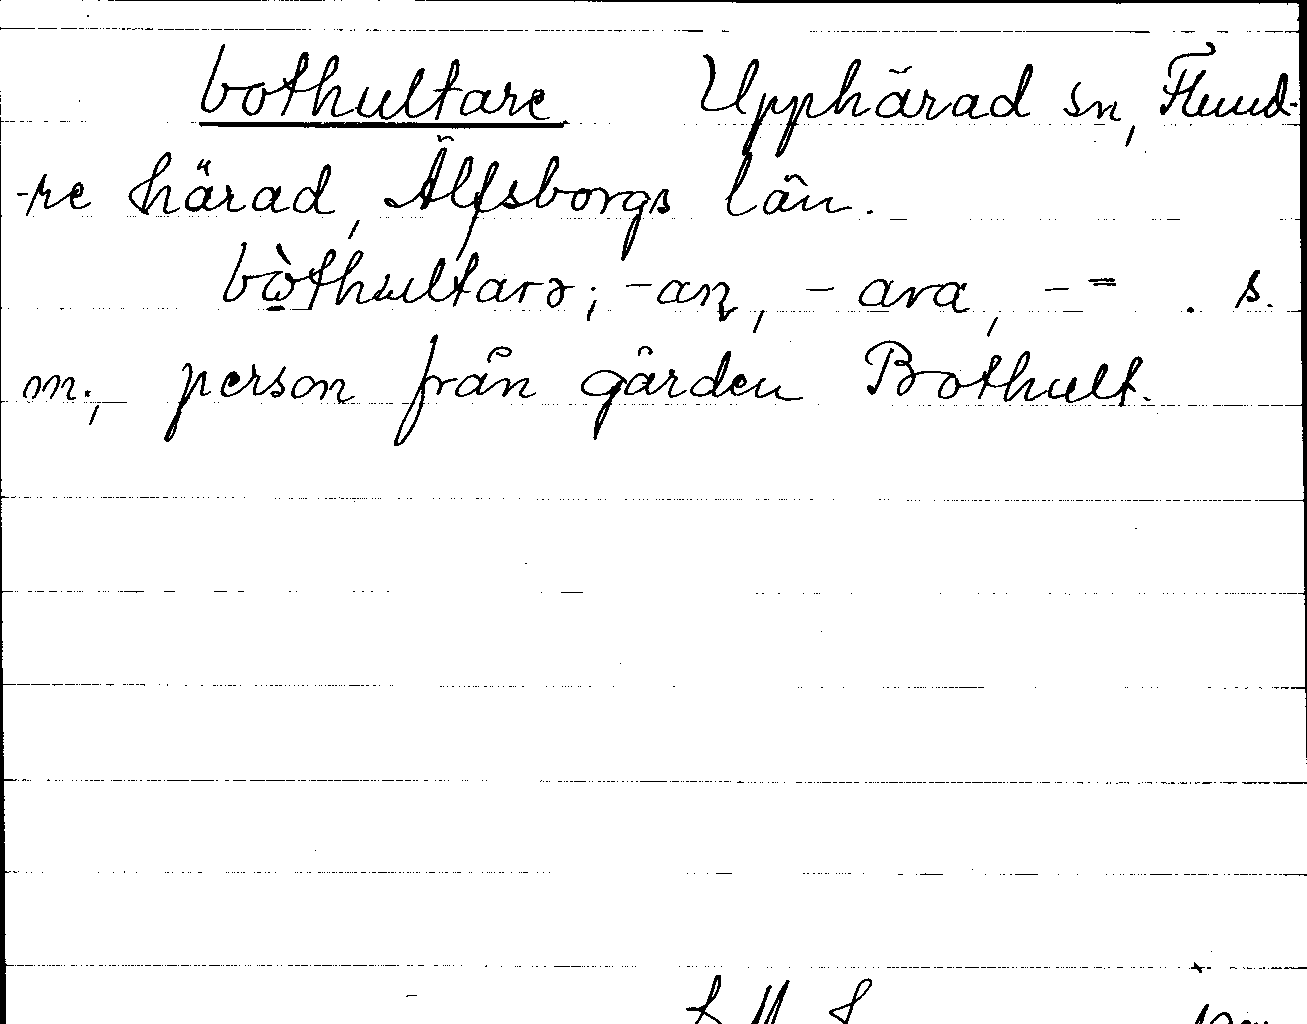 bothultare Upphärad sn, Flund-
-re härad, Älfsborgs län.
bòthultarə; -an, -ara, -= . s.
m., person från gården Bothult.